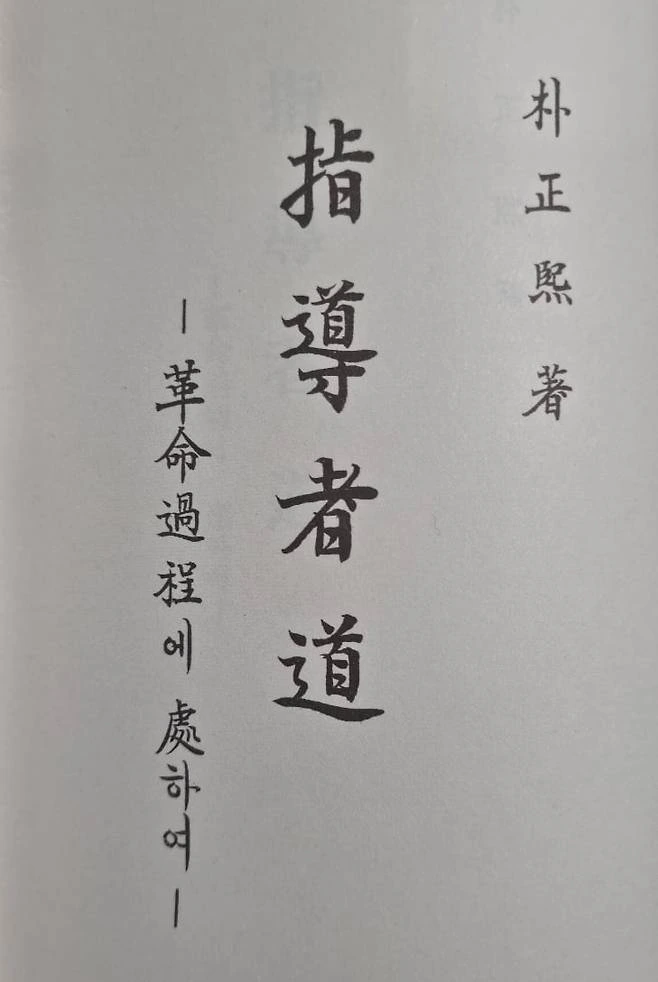 朴正熙 著
指導者道
ㅡ革命過程에 處하여ㅡ